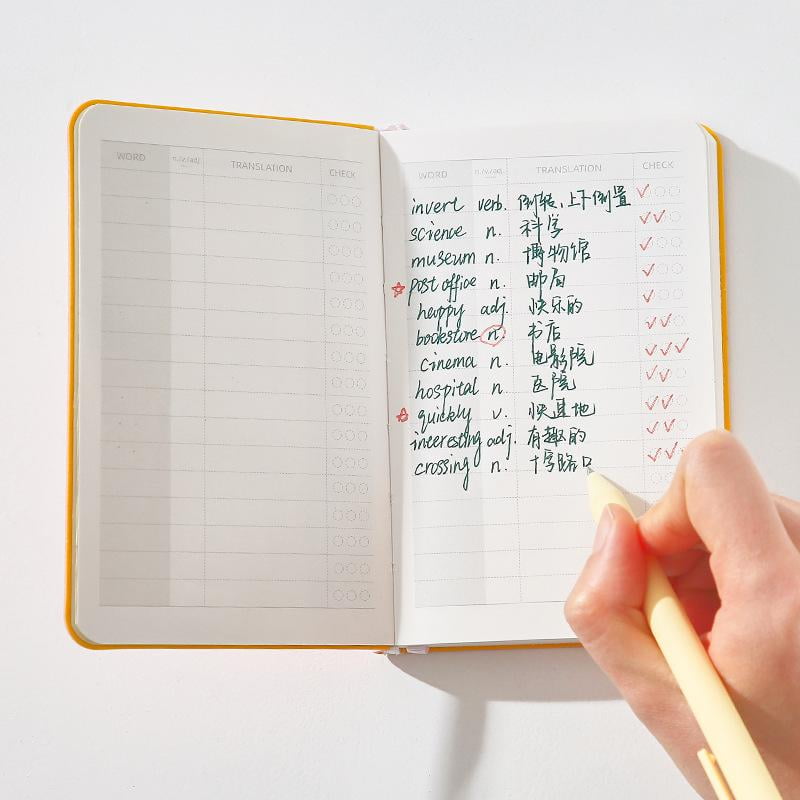 WORD n./v./adj. TRANSLATION CHECK
WORD n./v./adj. TRANSLATION CHECK
invert verb. 倒转、上下倒置
science n. 科学
museum n. 博物馆
post office n. 邮局
happy adj. 快乐的
bookstore n. 书店
cinema n. 电影院
hospital n. 医院
quickly v. 快速地
interesting adj. 有趣的
crossing n. 十字路口